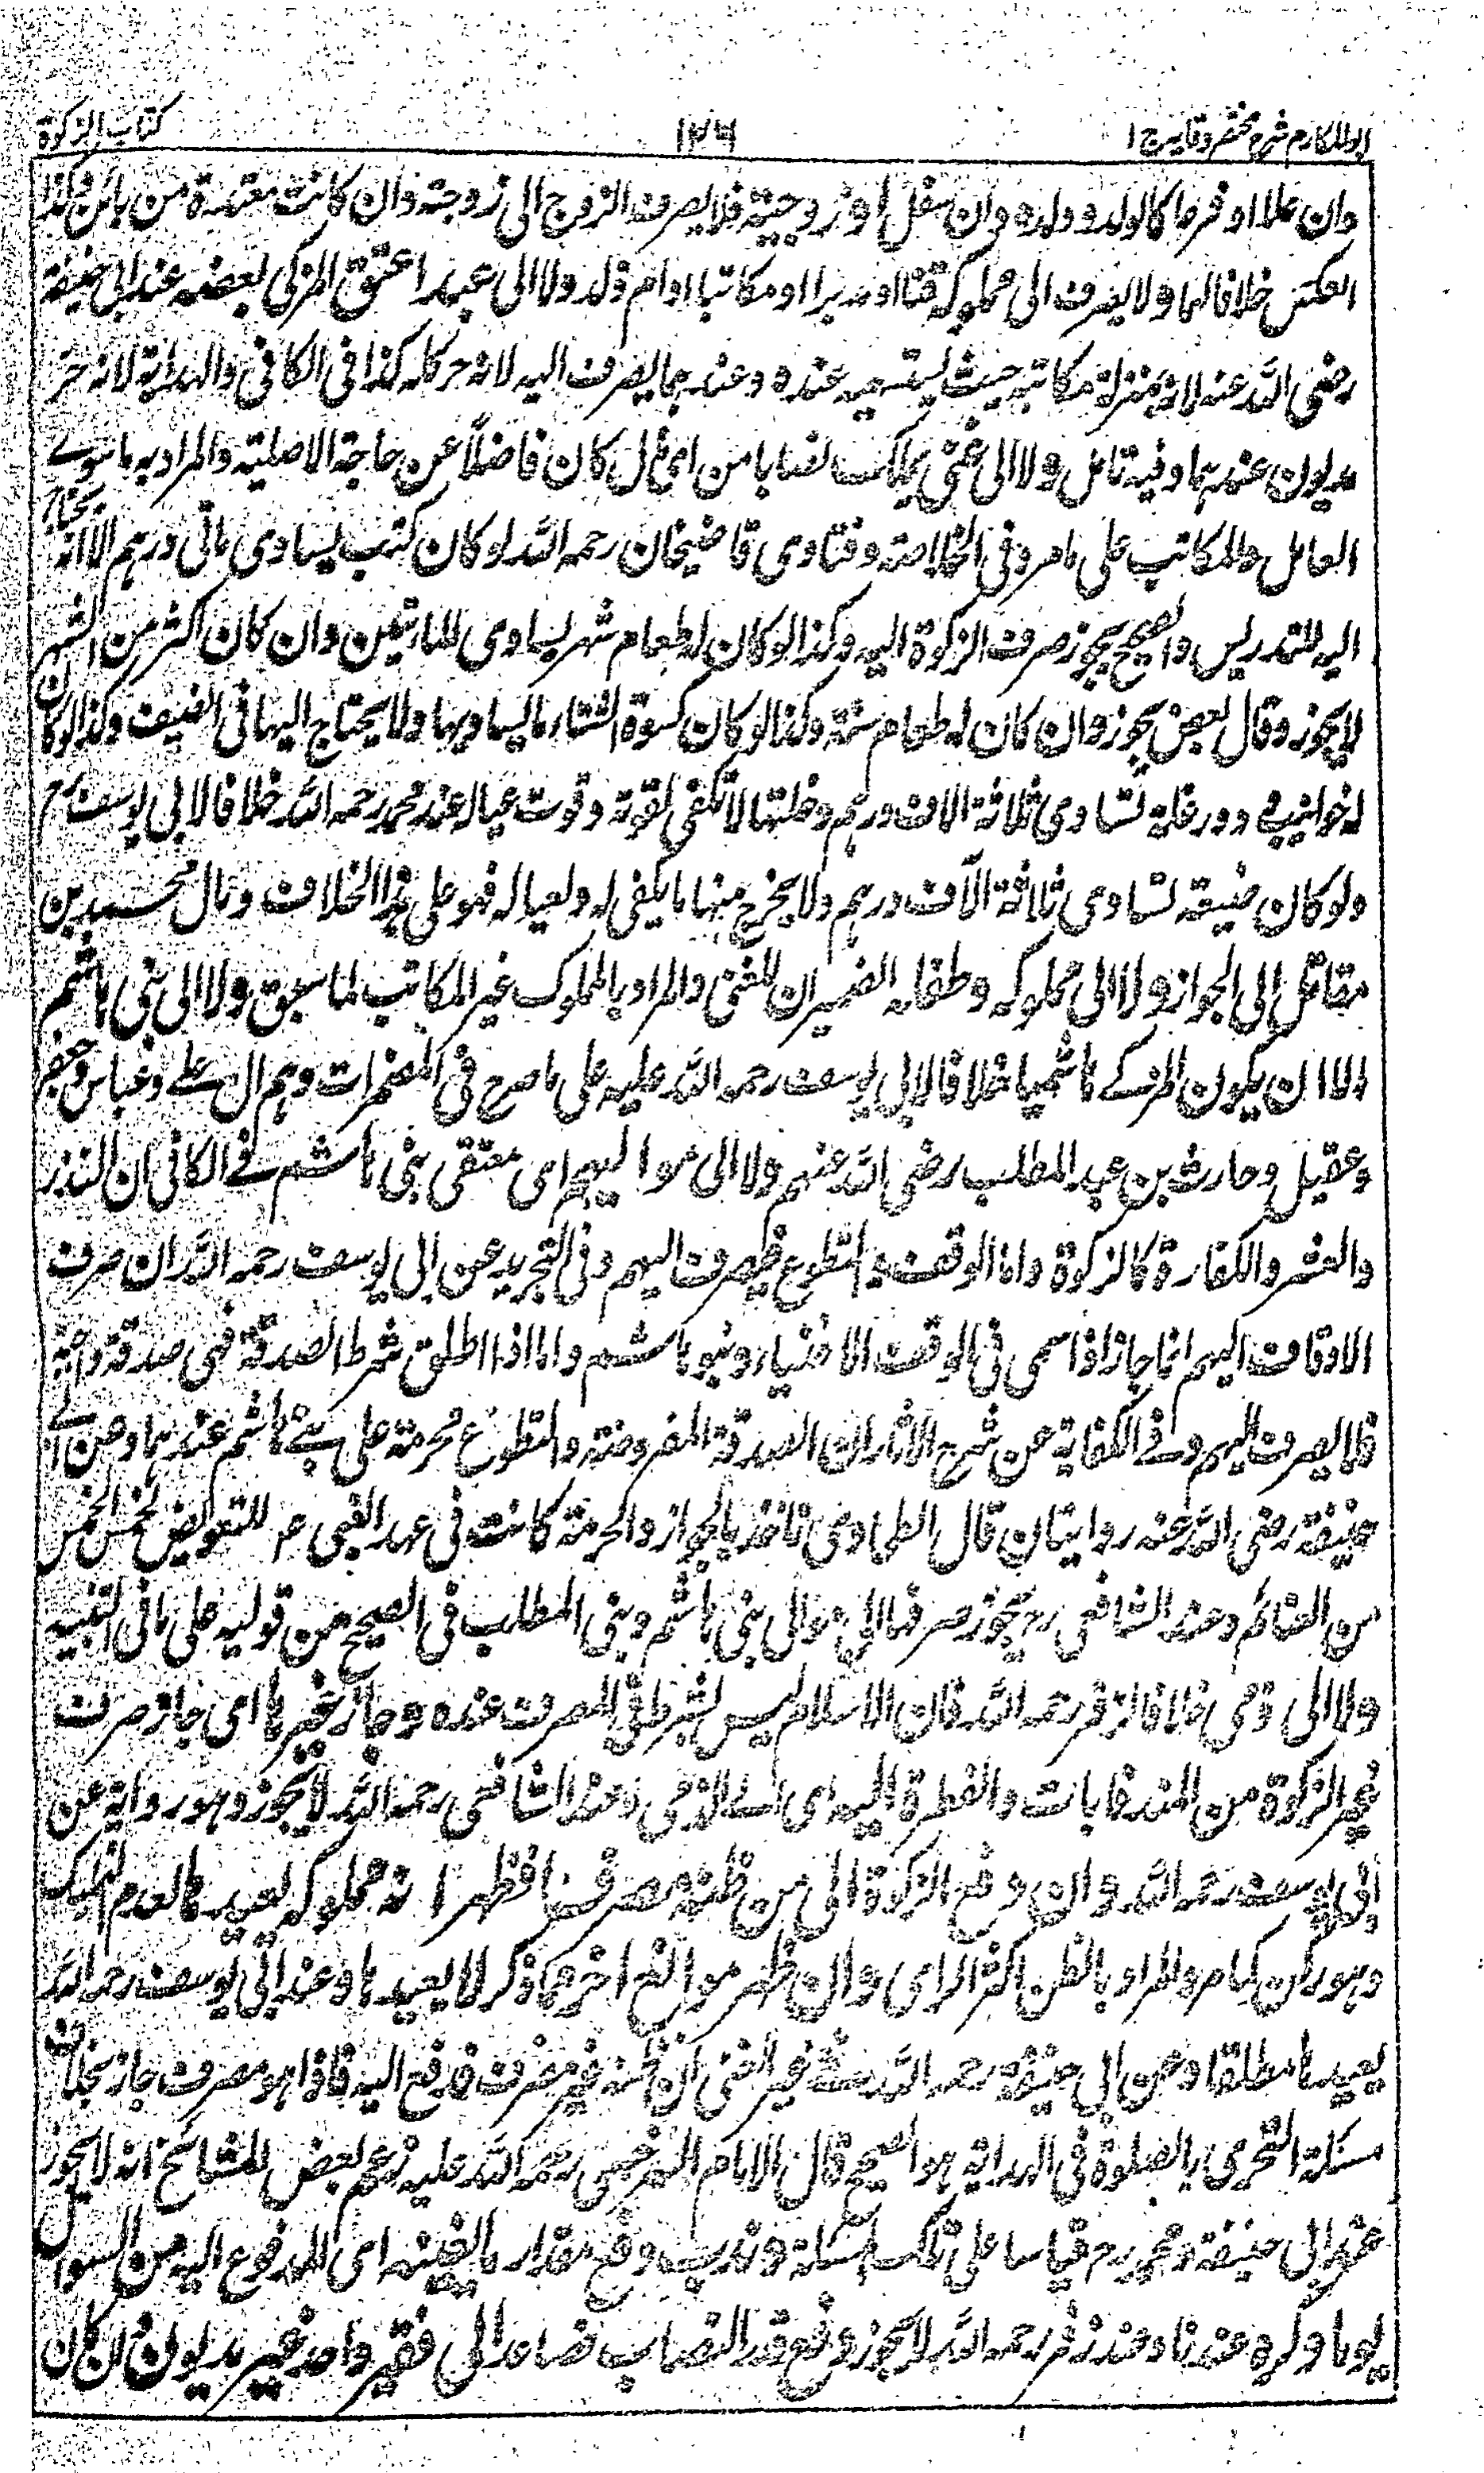 ابوالمکارم شرح مختصر وقایہ ج ۱
۱۲۶
کتاب الزکوة
وان علا او فرعا کالولد وولده وان سفل او زوجیة فلا یصرف الزوج الی زوجته وان کانت معتدة من بائن وکذا
العکس خلافا لهما ولا یصرف الی مملوکه قنا او مدبرا او مکاتبا او ام ولد ولا الی عبد اعتق المزکی بعضه عند ابی حنیفة
رضی الله عنه لانه بمنزلة مکاتبه حیث یستسعیه عنده وعندهما یصرف الیه لانه حر کله کذا فی الکافی والهدایة لانه حر
مدیون عندهما وفیه تامل ولا الی غنی یملک نصابا من ای مال کان فاضلا عن حاجته الاصلیة والمراد به ما سوے
العامل والمکاتب علی ما مر وفی الخلاصة وفتاوی قاضیخان رحمه الله لو کان کتب یساوی مائتی درهم الا انه یحتاج
الیه للتدریس والصحیح یجوز صرف الزکوة الیه وکذا لو کان له طعام شهر یساوی المائتین وان کان اکثر من الشهر
لا یجوز وقال بعض یجوز وان کان له طعام سنة وکذا لو کان کسوة الشتاء ما یساویها ولا یحتاج الیها فی الصیف وکذا لو کان
له حوانیت ودور غلة تساوی ثلاثة الاف درهم وغلتها لا تکفی لقوته وقوت عیاله عند محمد رحمه الله خلافا لابی یوسف رح
ولو کان ضیعة تساوی ثلاثة آلاف درهم ولا یخرج منها ما یکفی له ولعیاله فهو علی هذا الخلاف ومال محمد بن
مقاتل الی الجواز ولا الی مملوکه وطفله الضمیران للغنی والمراد بالمملوک غیر المکاتب لما سبق ولا الی بنی هاشم
الا ان یکون المزکے هاشمیا خلافا لابی یوسف رحمه الله علیه علی ما صرح فی المضمرات وهم ال علے وعباس وجعفر
وعقیل وحارث بن عبد المطلب رضی الله عنهم ولا الی موالیهم ای معتقی بنی هاشم فے الکافی ان النذر
والعشر والکفارة کالزکوة واما الوقف والتطوع فیصرف الیهم وفی التجرید عن ابی یوسف رحمه الله ان صرف
الاوقاف الیهم انما جاز اذا سمی فی الوقف الاغنیاء وبنو هاشم واما اذا اطلق شرط الصدقة فهی صدقة واجبة
فلا یصرف الیهم وفے الکفایة عن شرح الاثار ان الصدقة المفروضة والتطوع محرمة علی بنے هاشم عندهما وعن ابے
حنیفة رضی الله عنه روایتان قال الطحاوی ناخذ بالجواز والحرمة کانت فی عهد النبی ؑم للتعویض بخمس الخمس
من الغنائم وعند الشافعی رح یجوز صرفها الی موالی بنی هاشم وبنی المطلب فی الصحیح من قولیه علی ما فی التنبیه
ولا الی ذمی خلافا لزفر رحمه الله فان الاسلام لیس بشرط فی المصرف عنده وجاز غیرها ای جاز صرف
غیر الزکوة من المنذورات والفطرة الیه ای الے الذمی وعند الشافعی رحمه الله لا یجوز وهو روایة عن
ابی یوسف رحمه الله وان دفع الزکوة الی من ظنه مصرفا فظهر انه مملوکه یعیدها لعدم التملیک
وهو رکن کما مر والمراد بالظن اکثر الرای وان ظهر موانع اخر مما ذکر لا یعیدها وعند ابی یوسف رحمه الله
یعیدها مطلقا وعن ابی حنیفة رحمه الله فے غیر الغنی ان ظنه غیر مصرف فدفع الیه فاذا هو مصرف جاز بخلاف
مسئلة التحری بالصلوة فی الهدایة هو الصحیح قال الامام السرخسی رحمه الله علیه زعم بعض المشائخ انه لا یجوز
عند ابی حنیفة ومحمد رح قیاسا علی تلک المسئلة وندب دفع مقدار ما یغنیه ای المدفوع الیه من السوال
یوما وکره عندنا وعند زفر رحمه الله لا یجوز دفع قدر النصاب فصاعدا الی فقیر واحد غیر مدیون فان کان